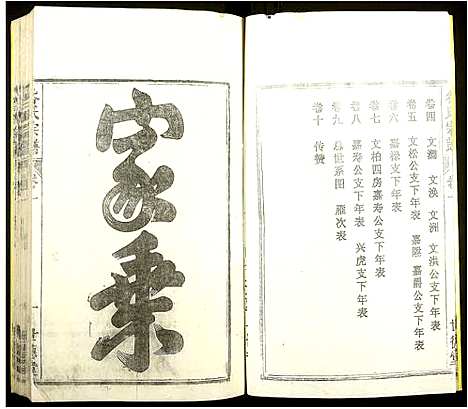 卷四　文澜　文焕　文洲　文洪公支下年表
卷五　文松公支下年表　嘉熙　嘉爵公支下年表
卷六　嘉松支下年表
卷七　文柏四房嘉寿公支下年表
卷八　嘉寿公支下年表　兴虎支下年表
卷九　总世系图　雁次表
卷十　传赞
世德堂
家乘
氏宗谱